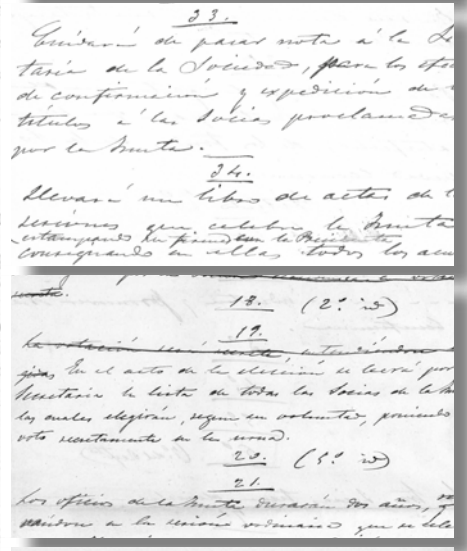 33.
Cuidará de pasar nota á la Se
taría de la Sociedad, para los efec
de confirmación y expedición de
títulos á las Socias proclamadas
por la Junta.
34.
Llevará un libro de actas de l
sesiones que celebre la Junta
estampando su firma con la Presidenta
consignando en ellas todos los acu
18. (2.º id)
19.
La votación será secreta, entendiéndose
En el acto de la elección se leerá por
Secretaría la lista de todas las Socias de la
las cuales elegirán, según su voluntad, poniendo
voto secretamente en la urna.
20. (5.º id)
21.
Los oficios de la Junta durarán dos años,
en la sesión ordinaria que se cele